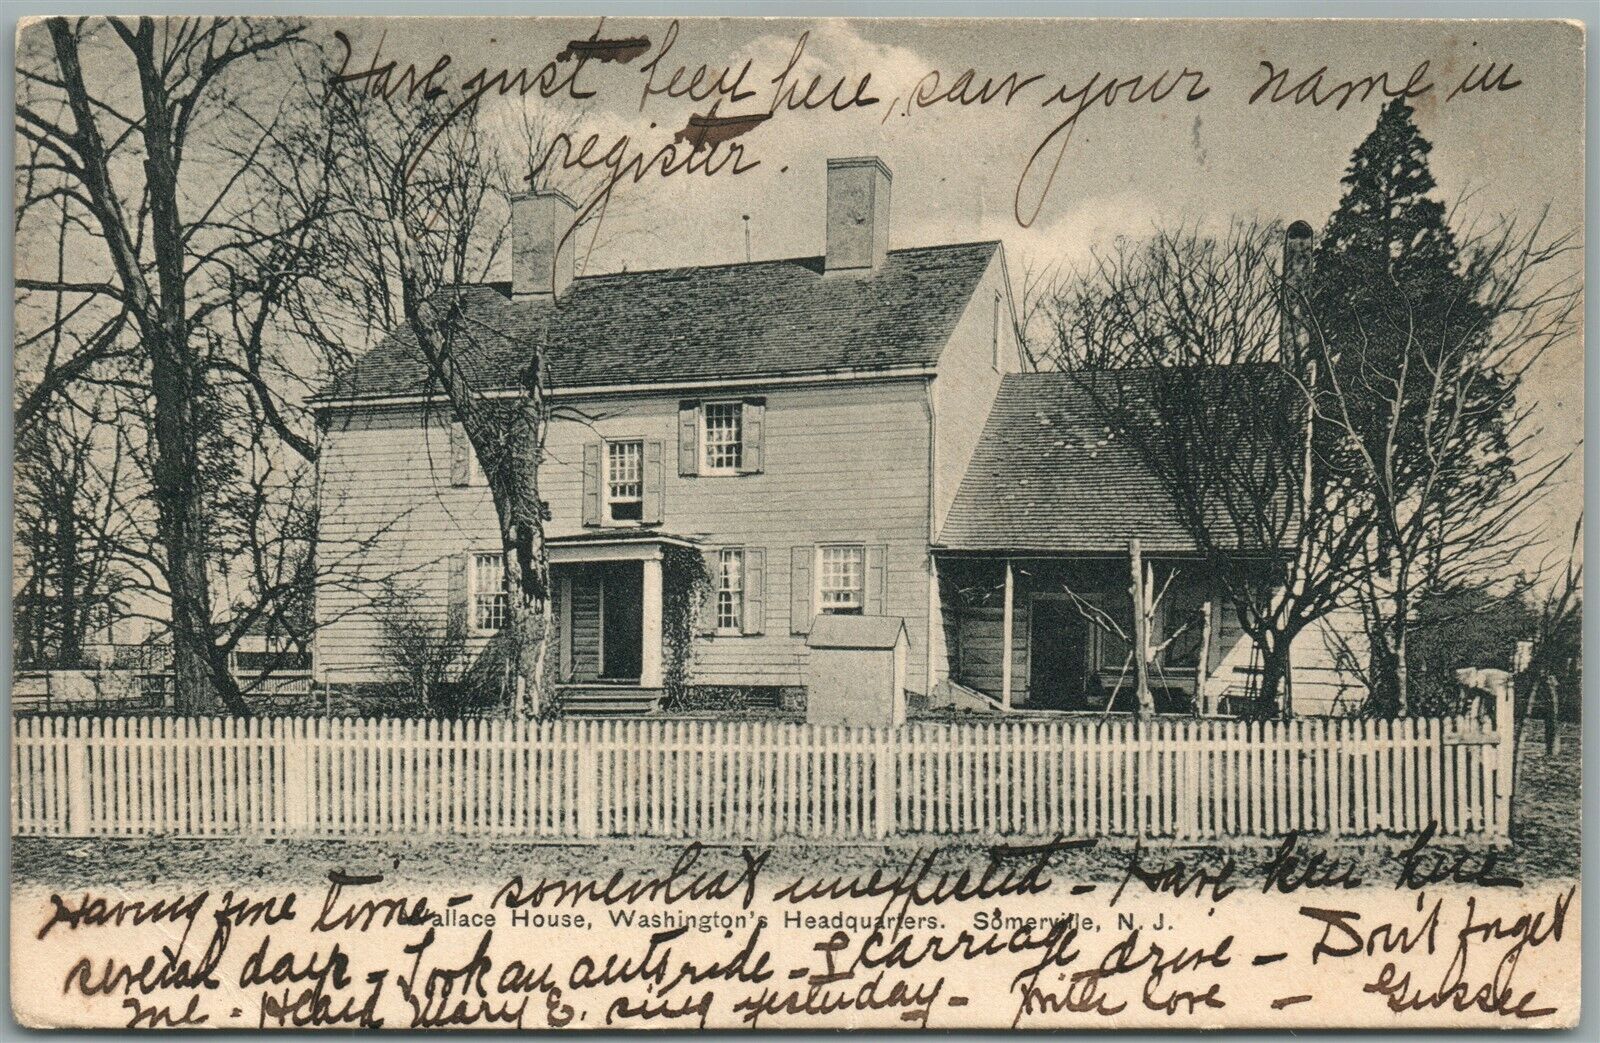 Have just been here, saw your name in
register.
Having fine time - somewhat unexpected - Have been here
Wallace House, Washington's Headquarters. Somerville, N. J.
several days - Took an auto ride - & carriage drive - Don't forget
me - Heard Mary E. sing yesterday - With love - Gussee